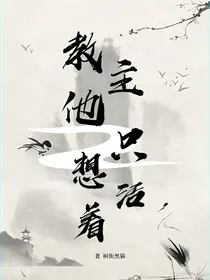 教主他只想活着
著 柯街黑猫